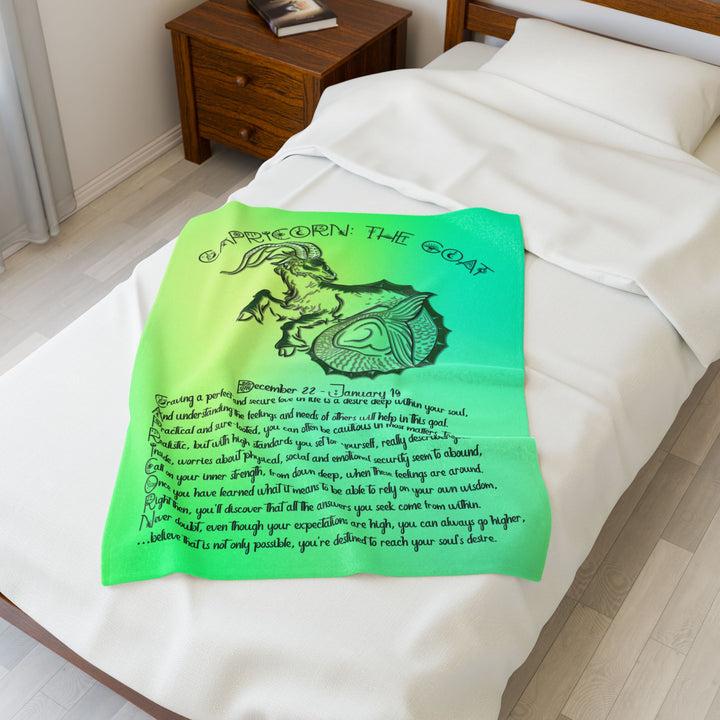 CAPRICORN: THE GOAT
December 22 - January 19
Craving a perfect and secure love in life is a desire deep within your soul,
And understanding the feelings and needs of others will help in this goal.
Practical and sure-footed, you can often be cautious in most matters,
Realistic, but with high standards you set for yourself, really describing
Inside, worries about physical, social and emotional security seem to abound,
Call on your inner strength, from down deep, when these feelings are around.
Once you have learned what it means to be able to rely on your own wisdom,
Right then, you'll discover that all the answers you seek come from within.
Never doubt, even though your expectations are high, you can always go higher,
...believe that is not only possible, you're destined to reach your soul's desire.